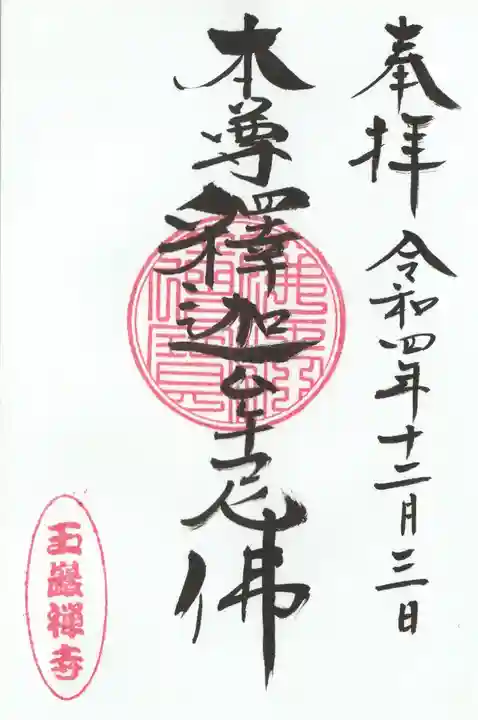 奉拝 令和四年十二月三日
本尊釋迦牟尼佛
玉巖禅寺